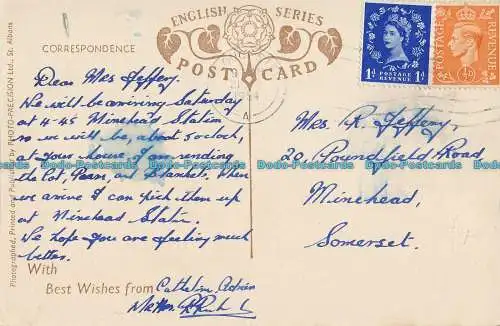 ENGLISH SERIES
POST CARD
CORRESPONDENCE
Photographed, Printed and Published by PHOTO-PRECISION Ltd., St. Albans
POSTAGE REVENUE
1d 1d
POSTAGE REVENUE
½d
Dear Mrs Jeffery.
We will be arriving Saturday
at 4-45 Minehead Station
so we will be, about 5 oclock,
at your house, I'm sending
the Cot, Pram, and Blankets. When
we arrive I can pick them up
at Minehead Static.
We hope you are feeling much
better.
With
Best Wishes from Catherine, Adrian
Mrs. R. Jeffery,
20, Poundfield Road
Minehead,
Somerset.
Dodo-Postcards Dodo-Postcards Dodo-Postcards Dodo-Postcards Dodo-Postcards